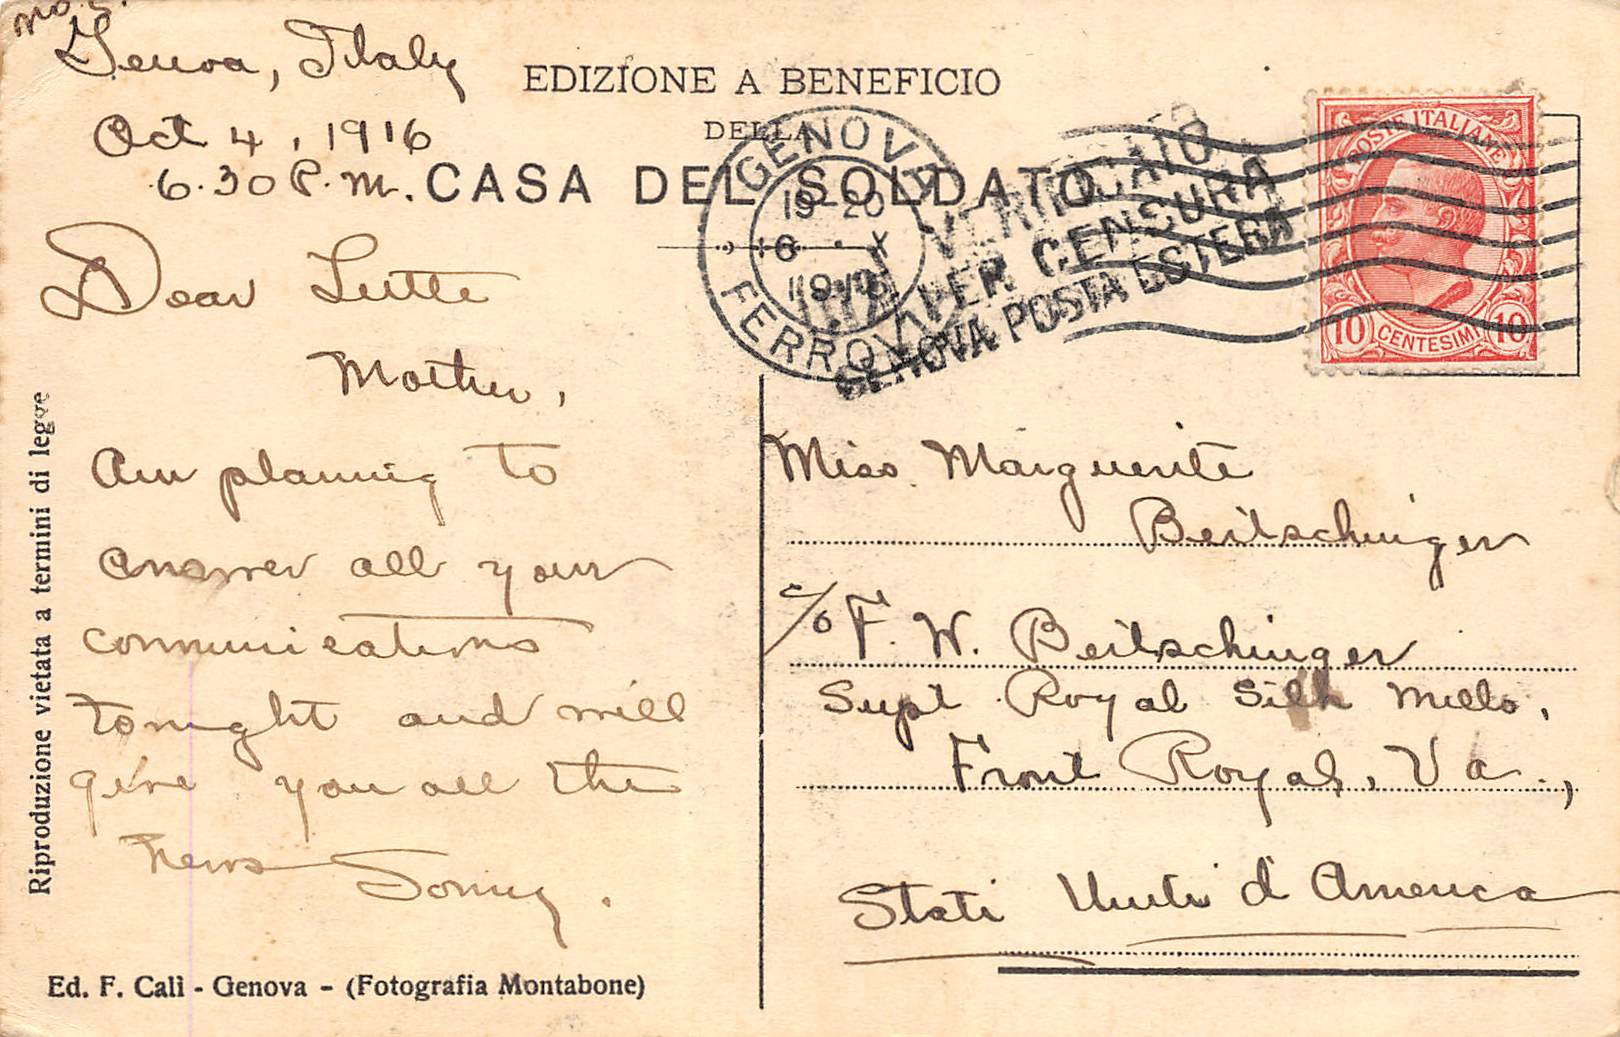 No 2.
Genoa, Italy
Oct 4, 1916
6.30 P.M.
Dear Little
Mother,
Am planning to
answer all your
communications
tonight and will
give you all the
news Sonny.
EDIZIONE A BENEFICIO
DELLA
CASA DEL SOLDATO
GENOVA
19-20
6 · X
1916
FERROVIA
VERIFICATO
PER CENSURA
GENOVA POSTA ESTERA
POSTE ITALIANE
10 CENTESIMI 10
Miss Marguerite
Beitschinger
c/o F. W. Beitschinger
Supt Royal Silk Mills,
Front Royal, Va.,
Stati Uniti d'America
Riproduzione vietata a termini di legge
Ed. F. Calì - Genova - (Fotografia Montabone)